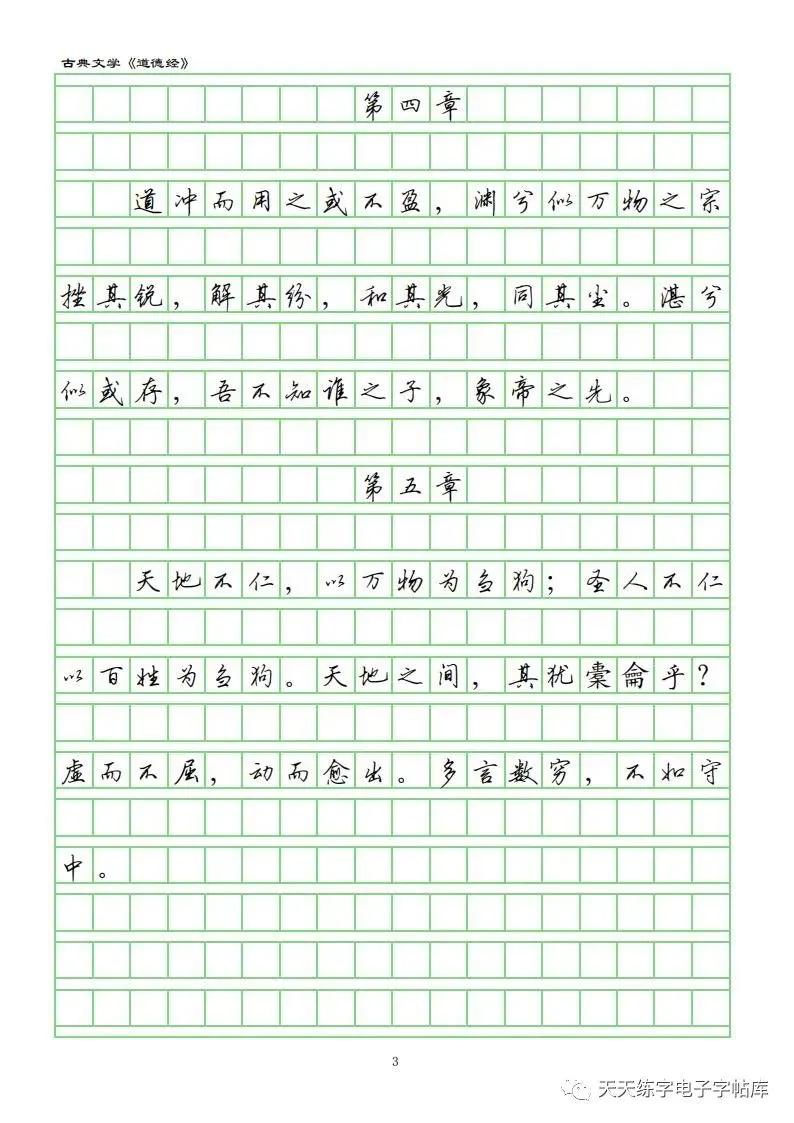 古典文学《道德经》
第四章
道冲而用之或不盈，渊兮似万物之宗
挫其锐，解其纷，和其光，同其尘。湛兮
似或存，吾不知谁之子，象帝之先。
第五章
天地不仁，以万物为刍狗；圣人不仁
以百姓为刍狗。天地之间，其犹橐龠乎？
虚而不屈，动而愈出。多言数穷，不如守
中。
3
天天练字电子字帖库